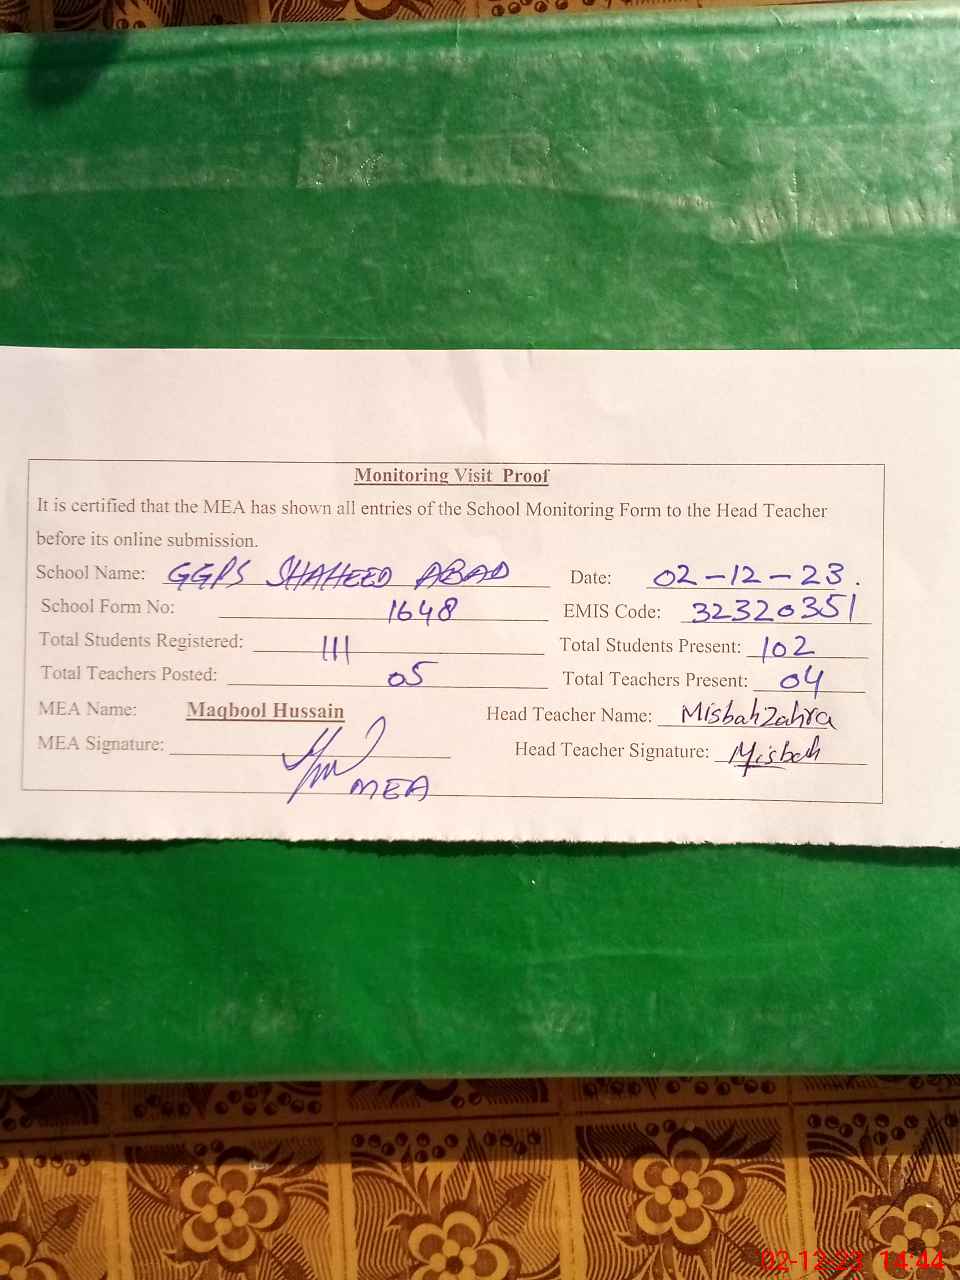 Monitoring Visit Proof
It is certified that the MEA has shown all entries of the School Monitoring Form to the Head Teacher
before its online submission.
School Name: GGPS SHAHEED ABAD Date: 02-12-23.
School Form No: 1648 EMIS Code: 32320351
Total Students Registered: 111 Total Students Present: 102
Total Teachers Posted: 05 Total Teachers Present: 04
MEA Name: Maqbool Hussain Head Teacher Name: Misbah Zahra
MEA Signature: MEA Head Teacher Signature: Misbah
02-12-23 14:44